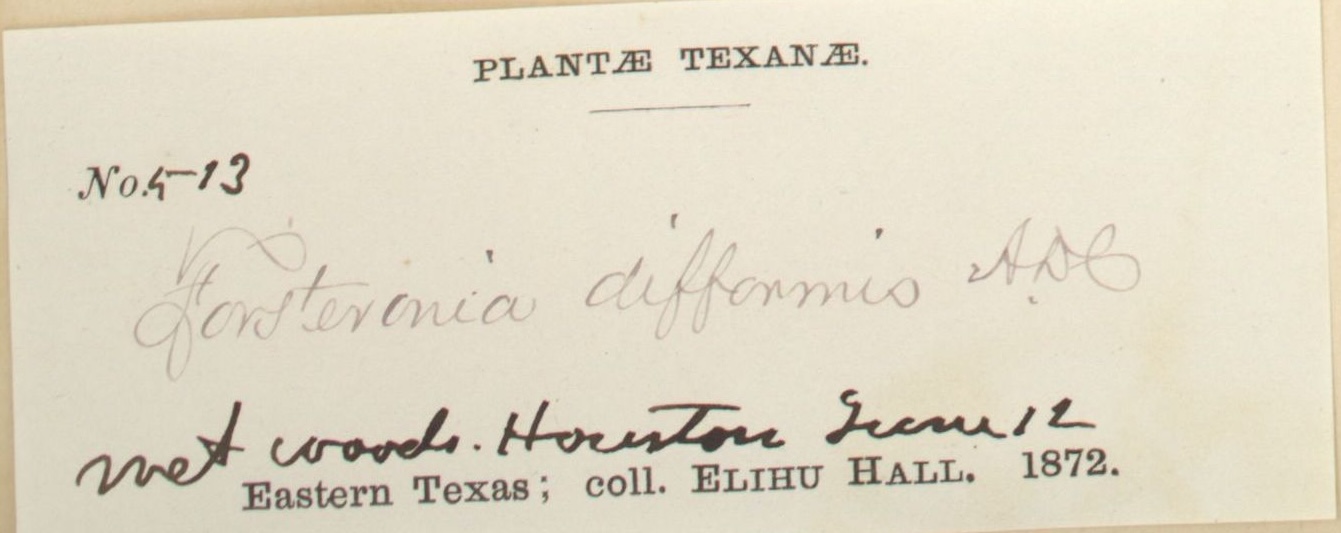 PLANTÆ TEXANÆ.
No. 513
Forsteronia difformis A.DC
wet woods. Houston June 12
Eastern Texas; coll. ELIHU HALL. 1872.